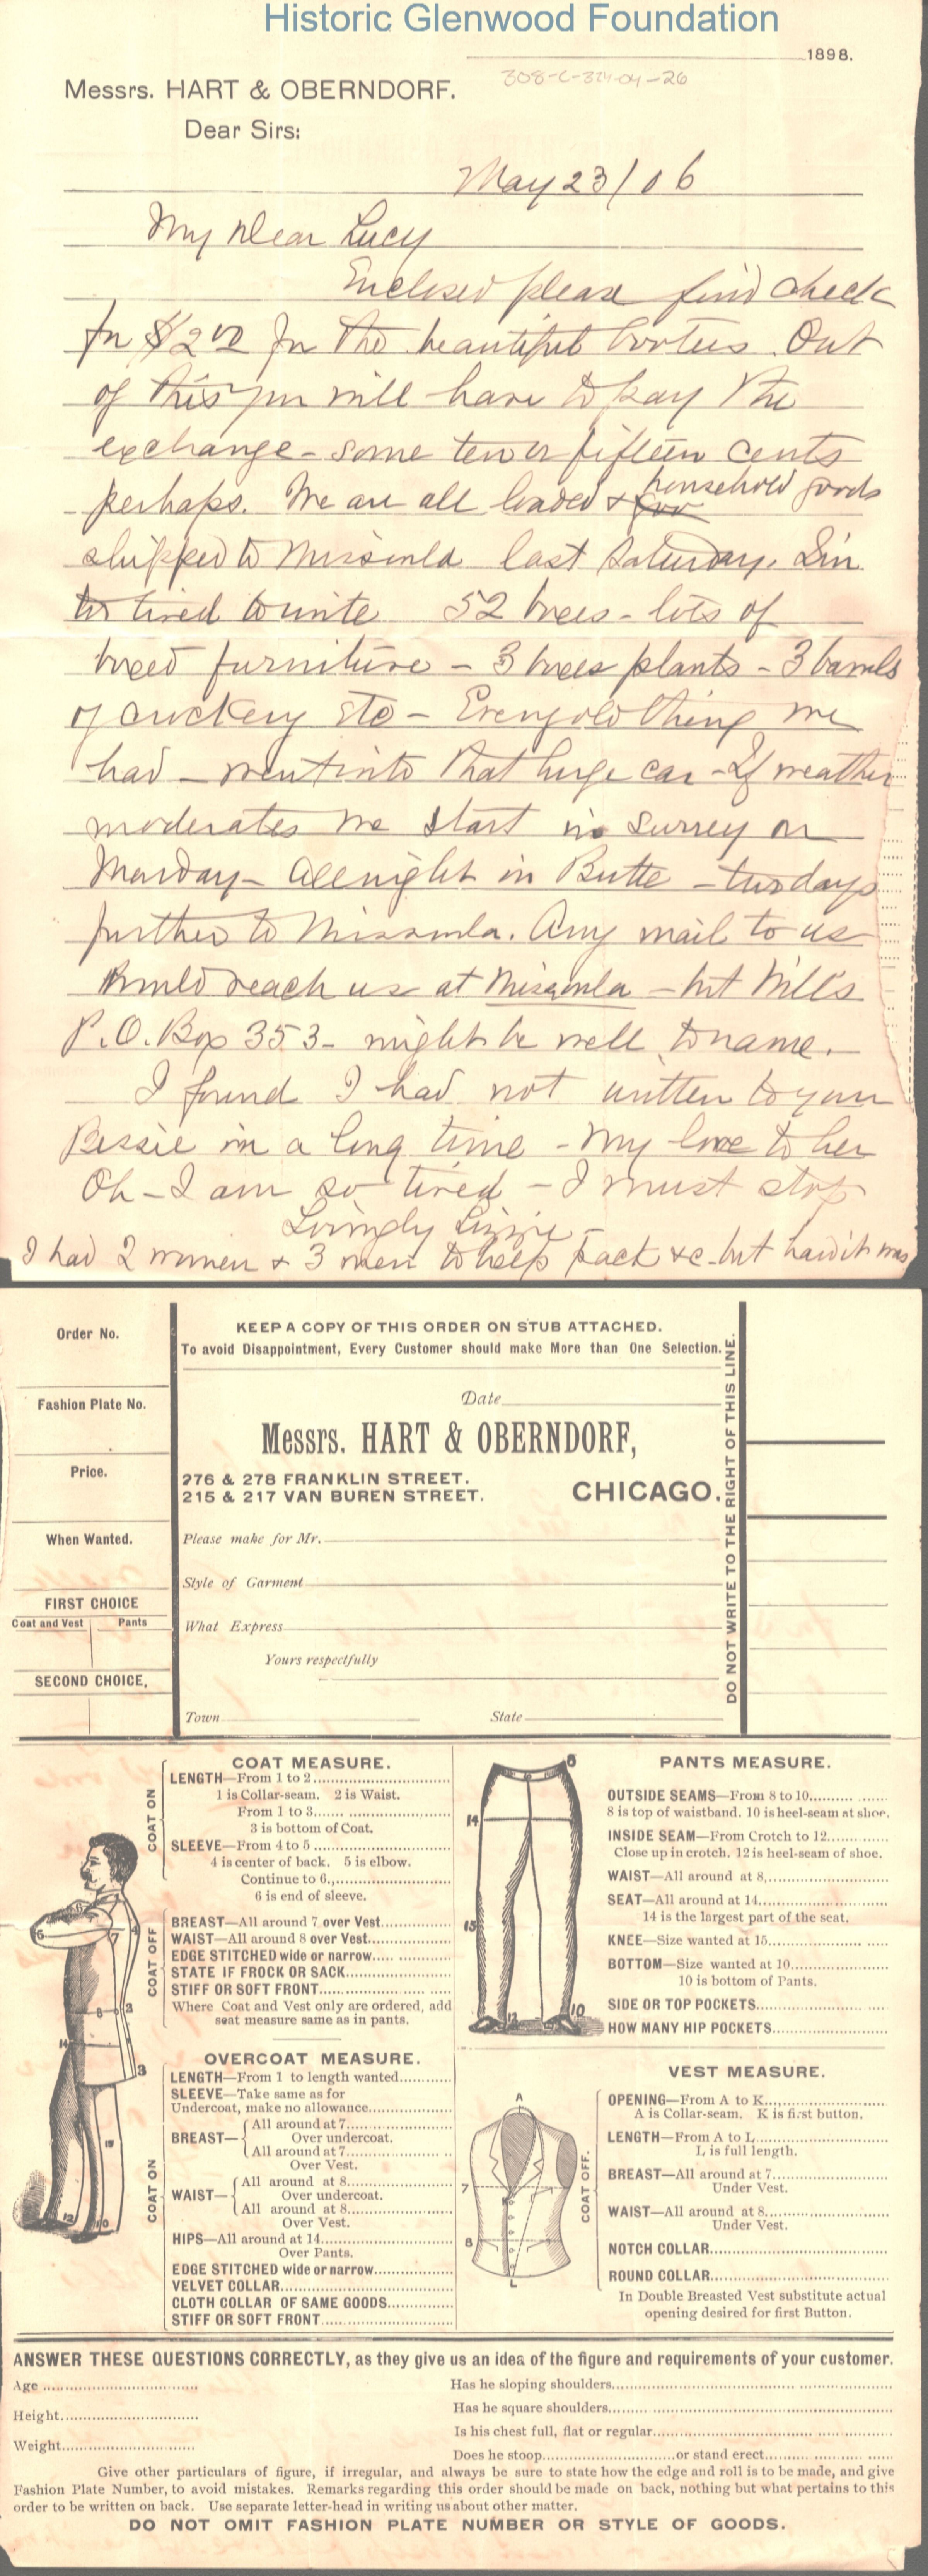 Historic Glenwood Foundation
1898.
308-C-324-04-26
Messrs. HART & OBERNDORF.
Dear Sirs:
May 23/06
My Dear Lucy
Enclosed please find check
for $2 00 for the beautiful booties. Out
of this you will have to pay the
exchange - some ten or fifteen cents
perhaps. We are all loaded & household goods
shipped to Missoula last Saturday. I'm
too tired to write 52 boxes - lots of
boxed furniture - 3 boxes plants - 3 barrels
of crockery etc - Every old thing we
had - went into that huge car - If weather
moderates we start in surrey on
Monday - All night in Butte - two days
further to Missoula. Any mail to us
would reach us at Missoula - but Will's
P.O. Box 353 - might be well to name.
I found I had not written to your
Bessie in a long time - My love to her
Oh - I am so tired - I must stop
Lovingly Lizzie -
I had 2 women & 3 men to help pack &c - but hard it was
Order No.
KEEP A COPY OF THIS ORDER ON STUB ATTACHED.
To avoid Disappointment, Every Customer should make More than One Selection.
Fashion Plate No.
Date
Messrs. HART & OBERNDORF,
Price.
276 & 278 FRANKLIN STREET.
215 & 217 VAN BUREN STREET.
CHICAGO.
When Wanted.
Please make for Mr.
Style of Garment
FIRST CHOICE
Coat and Vest Pants
What Express
Yours respectfully
SECOND CHOICE,
Town State
DO NOT WRITE TO THE RIGHT OF THIS LINE.
COAT MEASURE.
COAT ON
LENGTH—From 1 to 2
1 is Collar-seam. 2 is Waist.
From 1 to 3
3 is bottom of Coat.
SLEEVE—From 4 to 5
4 is center of back. 5 is elbow.
Continue to 6.,
6 is end of sleeve.
COAT OFF
BREAST—All around 7 over Vest
WAIST—All around 8 over Vest
EDGE STITCHED wide or narrow
STATE IF FROCK OR SACK
STIFF OR SOFT FRONT
Where Coat and Vest only are ordered, add
seat measure same as in pants.
6
7
4
8
2
14
3
15
12
10
OVERCOAT MEASURE.
COAT ON
LENGTH—From 1 to length wanted
SLEEVE—Take same as for
Undercoat, make no allowance
BREAST—
All around at 7
Over undercoat.
All around at 7
Over Vest.
WAIST—
All around at 8
Over undercoat.
All around at 8
Over Vest.
HIPS—All around at 14
Over Pants.
EDGE STITCHED wide or narrow
VELVET COLLAR
CLOTH COLLAR OF SAME GOODS
STIFF OR SOFT FRONT
PANTS MEASURE.
8
14
15
12
10
OUTSIDE SEAMS—From 8 to 10
8 is top of waistband. 10 is heel-seam at shoe.
INSIDE SEAM—From Crotch to 12
Close up in crotch. 12 is heel-seam of shoe.
WAIST—All around at 8,
SEAT—All around at 14
14 is the largest part of the seat.
KNEE—Size wanted at 15
BOTTOM—Size wanted at 10
10 is bottom of Pants.
SIDE OR TOP POCKETS
HOW MANY HIP POCKETS
VEST MEASURE.
A
7
K
8
L
COAT OFF.
OPENING—From A to K
A is Collar-seam. K is first button.
LENGTH—From A to L
L is full length.
BREAST—All around at 7
Under Vest.
WAIST—All around at 8
Under Vest.
NOTCH COLLAR
ROUND COLLAR
In Double Breasted Vest substitute actual
opening desired for first Button.
ANSWER THESE QUESTIONS CORRECTLY, as they give us an idea of the figure and requirements of your customer.
Age Has he sloping shoulders
Height Has he square shoulders
Is his chest full, flat or regular
Weight Does he stoop or stand erect
Give other particulars of figure, if irregular, and always be sure to state how the edge and roll is to be made, and give
Fashion Plate Number, to avoid mistakes. Remarks regarding this order should be made on back, nothing but what pertains to this
order to be written on back. Use separate letter-head in writing us about other matter.
DO NOT OMIT FASHION PLATE NUMBER OR STYLE OF GOODS.